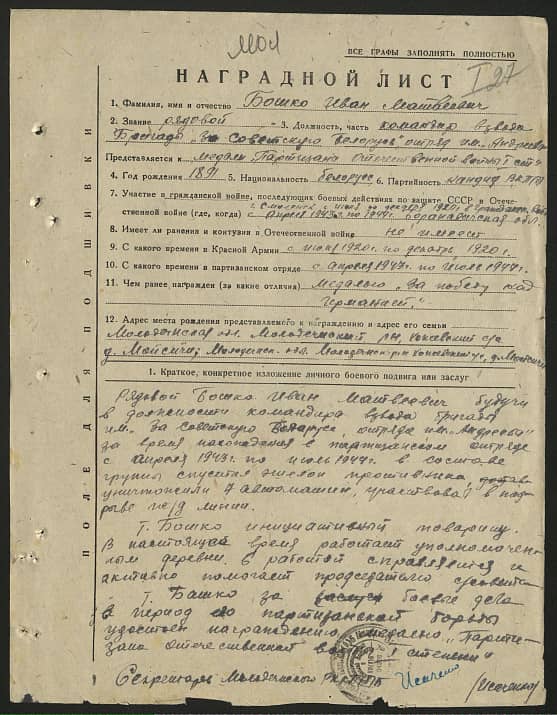 МОЛ
ВСЕ ГРАФЫ ЗАПОЛНЯТЬ ПОЛНОСТЬЮ
НАГРАДНОЙ ЛИСТ
I 27
1. Фамилия, имя и отчество Бошко Иван Матвеевич
2. Звание рядовой 3. Должность, часть командир взвода
Бригада „За Советскую Беларусь" отряд им. Андреева
Представляется к медали „Партизана Отечественной войны 1 ст"
4. Год рождения 1891 5. Национальность белорусс 6. Партийность кандид ВКП(б)
7. Участие в гражданской войне, последующих боевых действиях по защите СССР и Отече-
ственной войне (где, когда) с апреля 1943 г. по 1944 г. Барановичская обл.
8. Имеет ли ранения и контузии в Отечественной войне не имеет
9. С какого времени в Красной Армии с июня 1920 г. по декабрь 1920 г.
10. С какого времени в партизанском отряде с апреля 1943 г. по июль 1944 г.
11. Чем ранее награжден (за какие отличия) медалью „За победу над
Германией."
12. Адрес места рождения представляемого к награждению и адрес его семьи
Молодечнская обл. Молодечнский р-н,
д. Мойсичи, Молодечн. обл. Молодечн. р-н
1. Краткое, конкретное изложение личного боевого подвига или заслуг
Рядовой Бошко Иван Матвеевич будучи
в должности командира взвода бригада
им. „За Советскую Беларусь", отряда им. „Андреева"
за время нахождения в партизанском отряде
с апреля 1943 г. по июль 1944 г. в составе
группы спустил эшелон противника,
уничтожили 7 автомашин, участвовал в под-
рыве ж/д линии.
Т. Бошко инициативный товарищ.
В настоящий время работает уполномочен-
ным деревни. С работой справляется и
активно помогает председателю с/совета
Т. Бошко за боевые дела
в период партизанской борьбы
удостоен награждению медалью „Парти-
зана отечественной войны 1 степени"
Секретарь Молодечнского РК КП(б)Б
ПОЛЕ ДЛЯ ПОДШИВКИ